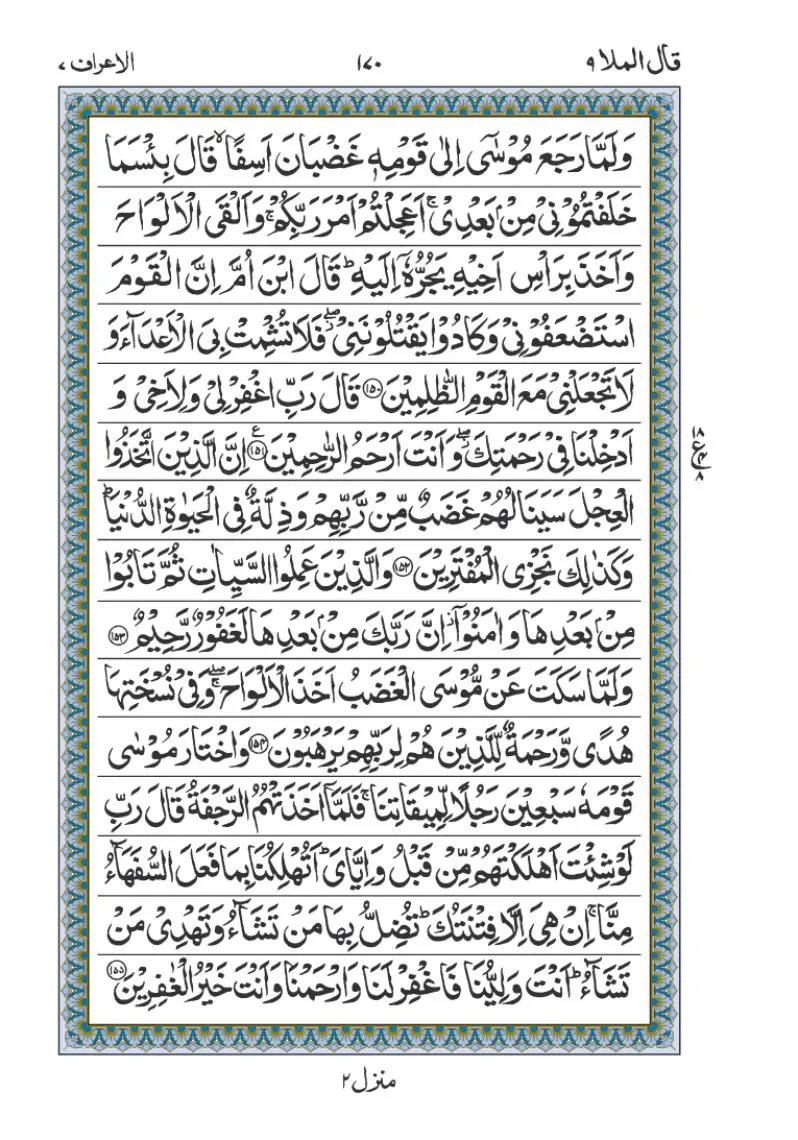 قال الملا ٩
١٧٠
الاعراف ٧
وَلَمَّا رَجَعَ مُوْسٰۤى اِلٰى قَوْمِهٖ غَضْبَانَ اَسِفًا ۙ قَالَ بِئْسَمَا
خَلَفْتُمُوْنِيْ مِنْۢ بَعْدِيْ ۚ اَعَجِلْتُمْ اَمْرَ رَبِّكُمْ ۚ وَاَلْقَى الْاَلْوَاحَ
وَاَخَذَ بِرَاْسِ اَخِيْهِ يَجُرُّهٗۤ اِلَيْهِ ؕ قَالَ ابْنَ اُمَّ اِنَّ الْقَوْمَ
اسْتَضْعَفُوْنِيْ وَكَادُوْا يَقْتُلُوْنَنِيْ ۖ فَلَا تُشْمِتْ بِيَ الْاَعْدَآءَ وَ
لَا تَجْعَلْنِيْ مَعَ الْقَوْمِ الظّٰلِمِيْنَ ﴿١٥٠﴾ قَالَ رَبِّ اغْفِرْ لِيْ وَلِاَخِيْ وَ
اَدْخِلْنَا فِيْ رَحْمَتِكَ ۖ وَاَنْتَ اَرْحَمُ الرّٰحِمِيْنَ ﴿١٥١﴾ اِنَّ الَّذِيْنَ اتَّخَذُوا
الْعِجْلَ سَيَنَالُهُمْ غَضَبٌ مِّنْ رَّبِّهِمْ وَذِلَّةٌ فِي الْحَيٰوةِ الدُّنْيَا ؕ
وَكَذٰلِكَ نَجْزِي الْمُفْتَرِيْنَ ﴿١٥٢﴾ وَالَّذِيْنَ عَمِلُوا السَّيِّاٰتِ ثُمَّ تَابُوْا
مِنْۢ بَعْدِهَا وَاٰمَنُوْۤا ۫ اِنَّ رَبَّكَ مِنْۢ بَعْدِهَا لَغَفُوْرٌ رَّحِيْمٌ ﴿١٥٣﴾
وَلَمَّا سَكَتَ عَنْ مُّوْسَى الْغَضَبُ اَخَذَ الْاَلْوَاحَ ۖۚ وَفِيْ نُسْخَتِهَا
هُدًى وَّرَحْمَةٌ لِّلَّذِيْنَ هُمْ لِرَبِّهِمْ يَرْهَبُوْنَ ﴿١٥٤﴾ وَاخْتَارَ مُوْسٰى
قَوْمَهٗ سَبْعِيْنَ رَجُلًا لِّمِيْقَاتِنَا ۚ فَلَمَّاۤ اَخَذَتْهُمُ الرَّجْفَةُ قَالَ رَبِّ
لَوْ شِئْتَ اَهْلَكْتَهُمْ مِّنْ قَبْلُ وَاِيَّايَ ؕ اَتُهْلِكُنَا بِمَا فَعَلَ السُّفَهَآءُ
مِنَّا ۚ اِنْ هِيَ اِلَّا فِتْنَتُكَ ؕ تُضِلُّ بِهَا مَنْ تَشَآءُ وَتَهْدِيْ مَنْ
تَشَآءُ ؕ اَنْتَ وَلِيُّنَا فَاغْفِرْ لَنَا وَارْحَمْنَا وَاَنْتَ خَيْرُ الْغٰفِرِيْنَ ﴿١٥٥﴾
منزل ٢